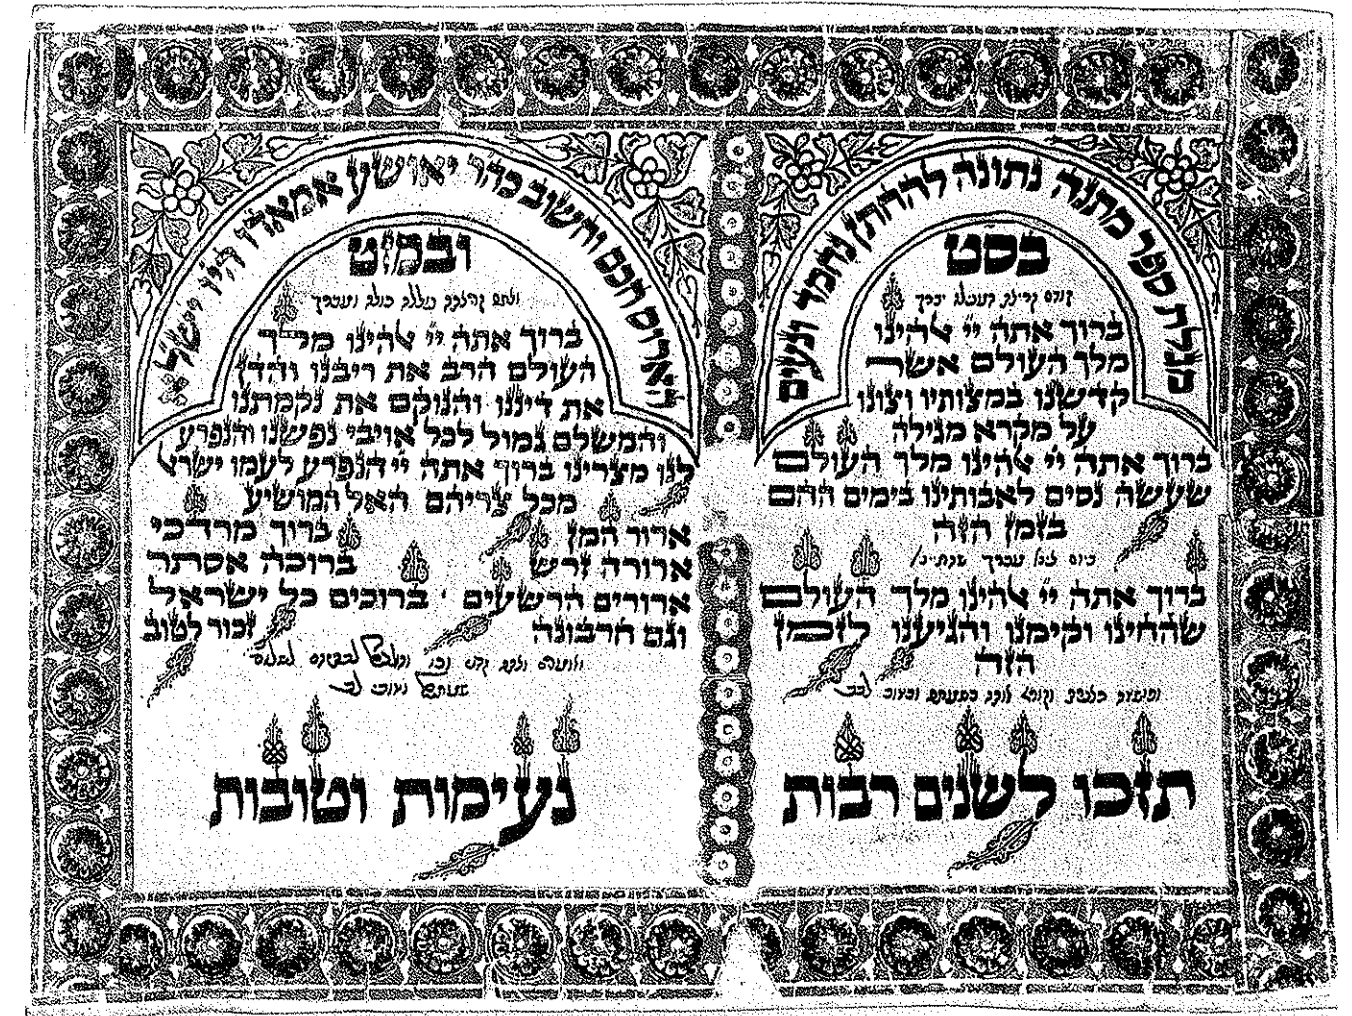 מגלת ספר מתנה נתונה להחתן נחמד ונעים
בסט
ברוך אתה יי אלהינו
מלך העולם אשר
קדשנו במצותיו וצונו
על מקרא מגילה
ברוך אתה יי אלהינו מלך העולם
שעשה נסים לאבותינו בימים ההם
בזמן הזה
ברוך אתה יי אלהינו מלך העולם
שהחינו וקימנו והגיענו לזמן
הזה
תזכו לשנים רבות
הארוס החכם והחשוב כהר
ברוך אתה יי אלהינו מלך
העולם הרב את ריבנו והדן
את דיננו והנוקם את נקמתנו
והמשלם גמול לכל אויבי נפשנו והנפרע
לנו מצרינו ברוך אתה יי הנפרע לעמו ישראל
מכל צריהם האל המושיע
ארור המן ברוך מרדכי
ארורה זרש ברוכה אסתר
ארורים הרשעים ברוכים כל ישראל
וגם חרבונה זכור לטוב
נעימות וטובות